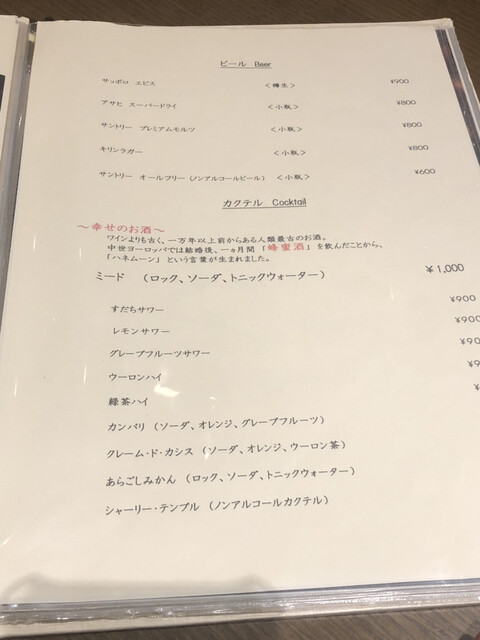 ビール Beer
サッポロ エビス <樽生> ¥900
アサヒ スーパードライ <小瓶> ¥800
サントリー プレミアムモルツ <小瓶> ¥800
キリンラガー <小瓶> ¥800
サントリー オールフリー(ノンアルコールビール) <小瓶> ¥600
カクテル Cocktail
～幸せのお酒～
ワインよりも古く、一万年以上前からある人類最古のお酒。
中世ヨーロッパでは結婚後、一ヵ月間「蜂蜜酒」を飲んだことから、
「ハネムーン」という言葉が生まれました。
ミード (ロック、ソーダ、トニックウォーター) ¥1,000
すだちサワー ¥900
レモンサワー ¥900
グレープフルーツサワー ¥90
ウーロンハイ ¥9
緑茶ハイ ¥
カンパリ (ソーダ、オレンジ、グレープフルーツ)
クレーム・ド・カシス (ソーダ、オレンジ、ウーロン茶)
あらごしみかん (ロック、ソーダ、トニックウォーター)
シャーリー・テンプル (ノンアルコールカクテル)